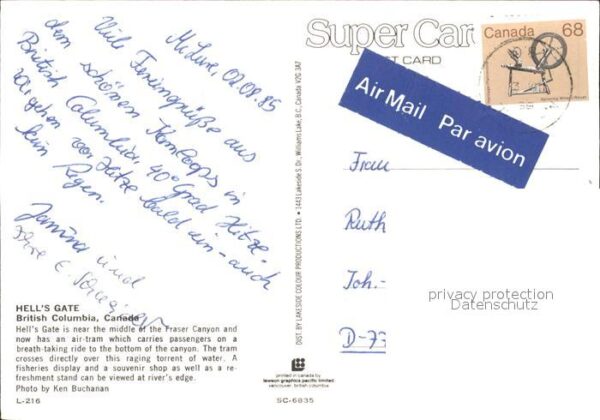 02.08.85
Viele Feriengrüße aus
dem schönen Kamloops in
British Columbia. 40 Grad Hitze.
Wir gehen vor Hitze bald ein - auch
kein Regen.
Janina und
HELL'S GATE
British Columbia, Canada
Hell's Gate is near the middle of the Fraser Canyon and
now has an air-tram which carries passengers on a
breath-taking ride to the bottom of the canyon. The tram
crosses directly over this raging torrent of water. A
fisheries display and a souvenir shop as well as a re-
freshment stand can be viewed at river's edge.
Photo by Ken Buchanan
L-216
DIST. BY LAKESIDE COLOUR PRODUCTIONS LTD. • 3443 Lakeside S. Dr., Williams Lake, B.C., Canada V2G 3A7
printed in canada by
lawson graphics pacific limited
vancouver, british columbia
SC-6835
Super Car
ST CARD
Canada 68
Air Mail Par avion
Frau
Ruth
Joh.-
D-73
privacy protection
Datenschutz